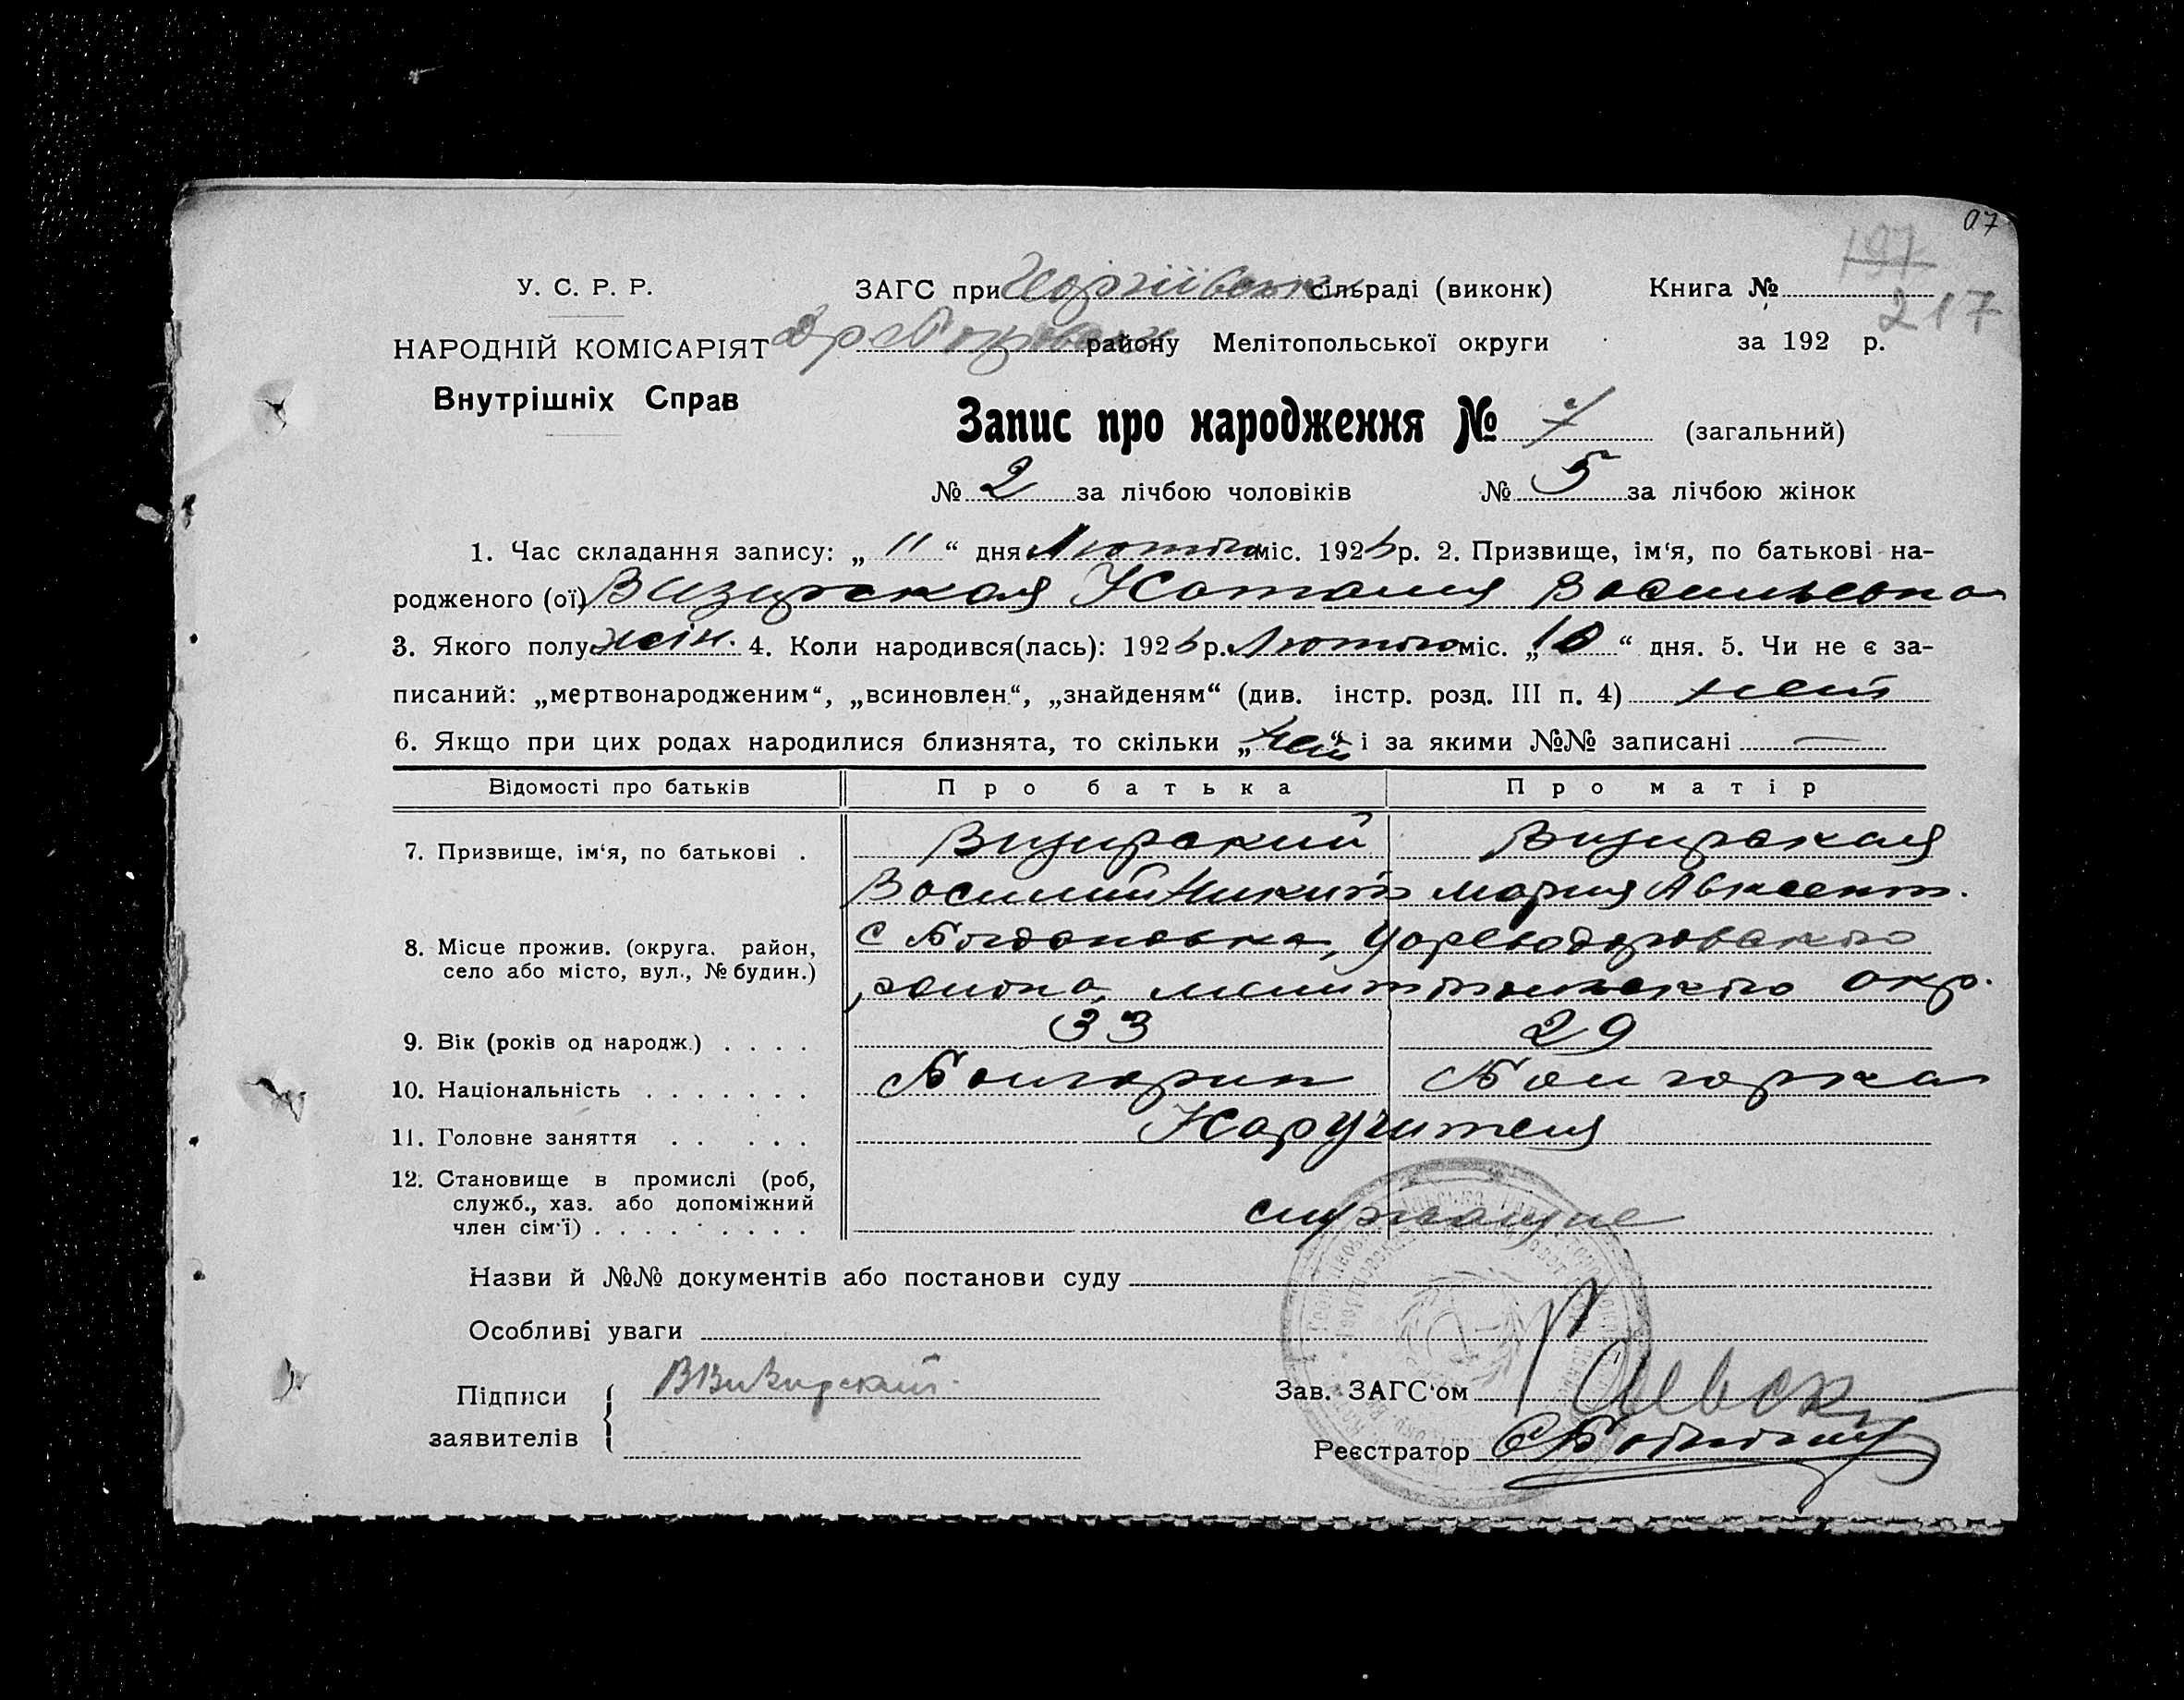 07
197
У. С. Р. Р. ЗАГС при Георгіївськ сільраді (виконк) Книга №
217
НАРОДНІЙ КОМІСАРІЯТ району Мелітопольської округи за 192 р.
Внутрішніх Справ
Запис про народження № 7 (загальний)
№ 2 за лічбою чоловіків № 5 за лічбою жінок
1. Час складання запису: „ 11 “ дня Лютого міс. 192 р. 2. Призвище, ім‘я, по батькові на-
родженого (ої) Визирская Наталия Васильевна
3. Якого полу жін. 4. Коли народився(лась): 192 р. Лютого міс. „10“ дня. 5. Чи не є за-
писаний: „мертвонародженим“, „всиновлен“, „знайденям“ (див. інстр. розд. III п. 4) нет
6. Якщо при цих родах народилися близнята, то скільки „нет“ і за якими №№ записані —
Відомості про батьків Про батька Про матір
7. Призвище, ім‘я, по батькові . Визирский Визирская
Василий Никит Мария Авксент.
8. Місце прожив. (округа. район, село або місто, вул., № будин.) с Богдановка, Цареводаровского
района, мелитопольского окр.
9. Вік (років од народж.) . . . . 33 29
10. Національність . . . . . . . Болгарин Болгарка
11. Головне заняття . . . . . Наручителя
12. Становище в промислі (роб, служб., хаз. або допоміжний член сім‘ї) . . . . . . . . служащие
Назви й №№ документів або постанови суду
Особливі уваги
Підписи заявителів { ВВизирский
Зав. ЗАГС‘ом
Реєстратор